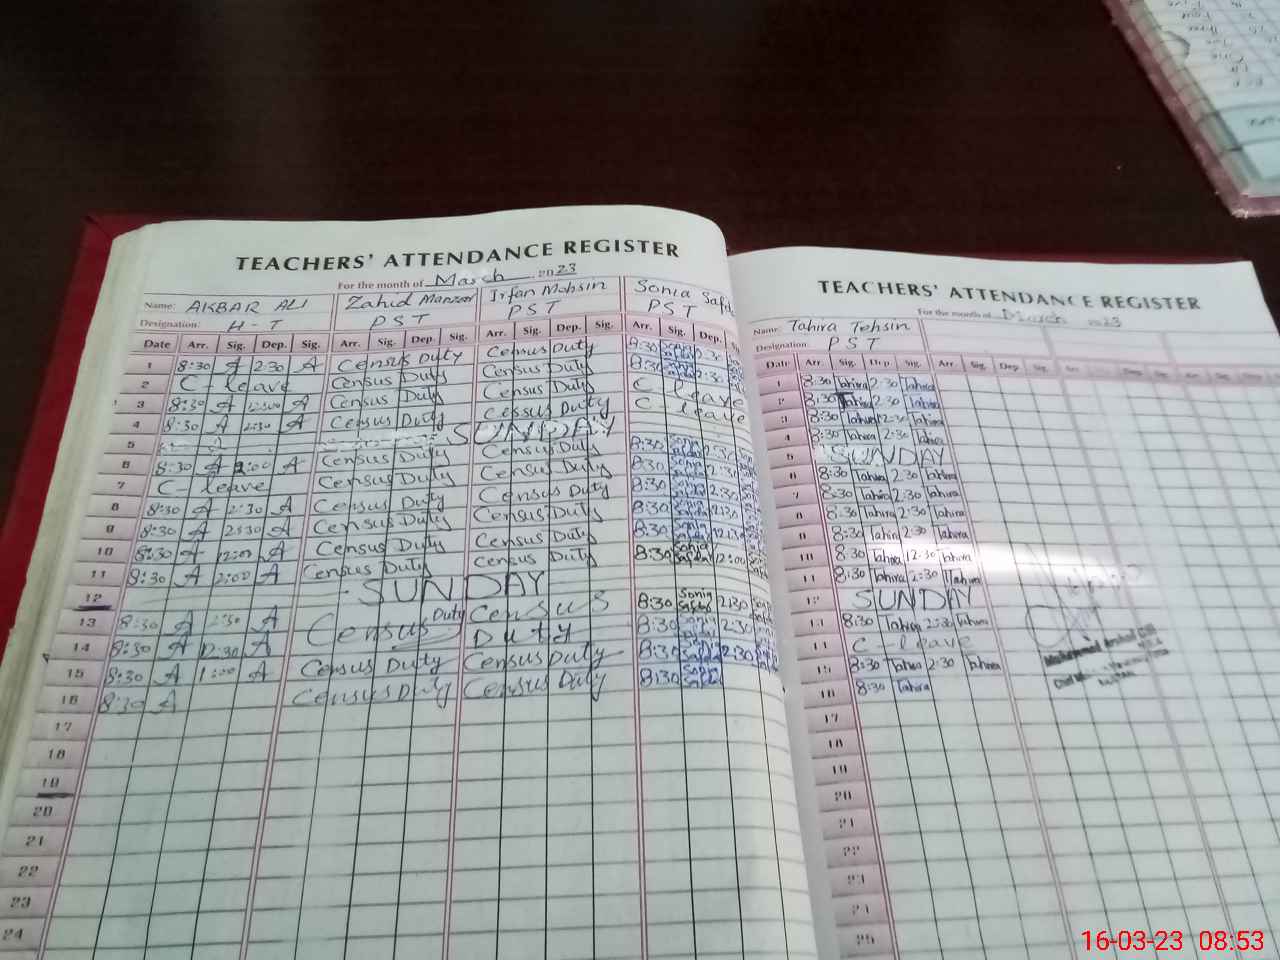 TEACHERS' ATTENDANCE REGISTER
For the month of March 2023
Name: AKBAR ALI Zahid Manzoor Irfan Mohsin Sonia
Designation: H-T PST PST PST
Date Arr. Sig. Dep. Sig. Arr. Sig. Dep. Sig. Arr. Sig. Dep. Sig. Arr. Sig. Dep.
1 8:30 A 2:30 A Census Duty Census Duty 8:30 2:30
2 C-leave Census Duty Census Duty 8:30 2:30
3 8:30 A 12:00 A Census Duty Census Duty C-leave
4 8:30 A 2:30 A Census Duty Cessus Duty C-leave
5 SUNDAY
6 8:30 A 2:00 A Census Duty Census Duty 8:30 2:30
7 C-leave Census Duty Census Duty 8:30 2:30
8 8:30 A 2:30 A Census Duty Census Duty 8:30 2:30
9 8:30 A 2:30 A Census Duty Census Duty 8:30 2:30
10 8:30 A 12:00 A Census Duty Census Duty 8:30 12:30
11 8:30 A 2:00 A Census Duty Census Duty 8:30 Sonia 12:00
12 SUNDAY
13 8:30 A 2:30 A Census Duty Census 8:30 Sonia 2:30
14 8:30 A 12:30 A Duty 8:30 2:30
15 8:30 A 1:00 A Census Duty Census Duty 8:30 2:30
16 8:30 A Census Duty Census Duty 8:30
17
18
19
20
21
22
23
24
TEACHERS' ATTENDANCE REGISTER
For the month of March 2023
Name: Tahira Tehsin
Designation: PST
Date Arr. Sig. Dep. Sig. Arr. Sig. Dep. Sig. Arr. Sig. Dep. Sig. Arr. Sig.
1 8:30 Tahira 2:30 Tahira
2 8:30 Tahira 2:30 Tahira
3 8:30 Tahira 12:30 Tahira
4 8:30 Tahira 2:30 Tahira
5 SUNDAY
6 8:30 Tahira 2:30 Tahira
7 8:30 Tahira 2:30 Tahira
8 8:30 Tahira 2:30 Tahira
9 8:30 Tahira 2:30 Tahira
10 8:30 Tahira 12:30 Tahira
11 8:30 Tahira 2:30 Tahira
12 SUNDAY
13 8:30 Tahira 2:30 Tahira
14 C-leave
15 8:30 Tahira 2:30 Tahira
16 8:30 Tahira
17
18
19
20
21
22
23
24
25
16-03-23 08:53